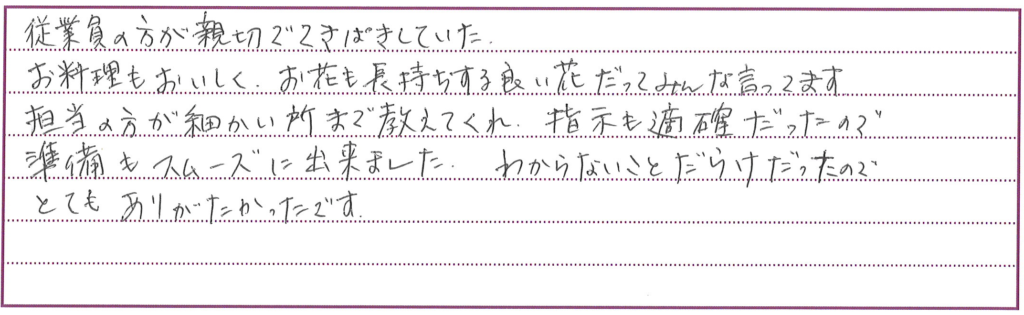 従業員の方が親切でてきぱきしていた.
お料理もおいしく.お花も長持ちする良い花だってみんな言ってます
担当の方が細かい所まで教えてくれ.指示も適確だったので
準備もスムーズに出来ました.わからないことだらけだったので
とてもありがたかったです.